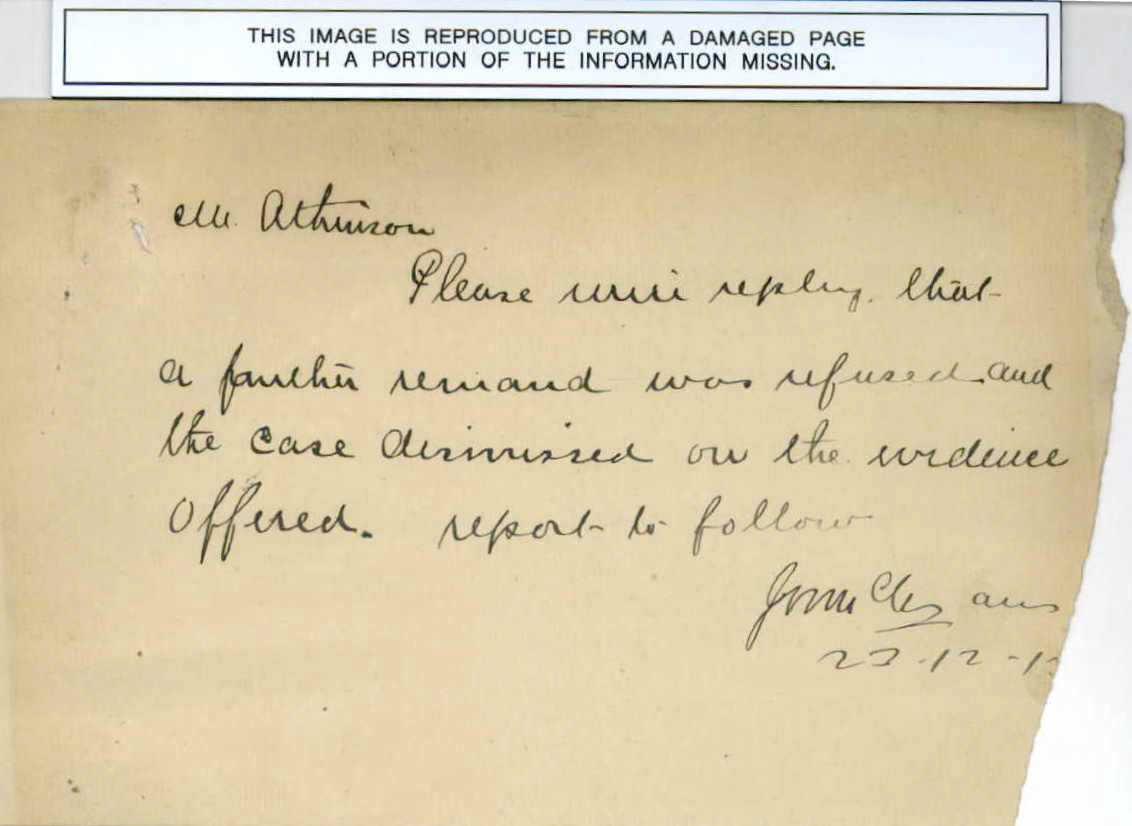 THIS IMAGE IS REPRODUCED FROM A DAMAGED PAGE
WITH A PORTION OF THE INFORMATION MISSING.
Mr. Atkinson
Please wire reply, that
a further remand was refused and
the case dismissed on the evidence
offered. report to follow
23-12-1